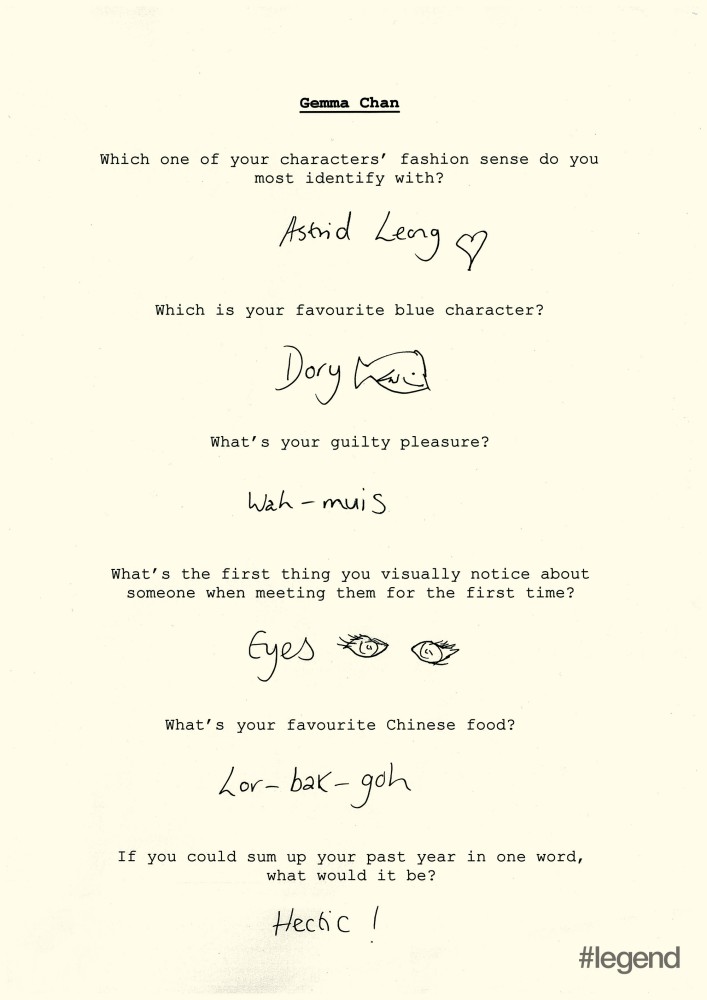 Gemma Chan
Which one of your characters’ fashion sense do you
most identify with?
Astrid Leong
Which is your favourite blue character?
Dory
What’s your guilty pleasure?
Wah-muis
What’s the first thing you visually notice about
someone when meeting them for the first time?
Eyes
What’s your favourite Chinese food?
Lor-bak-goh
If you could sum up your past year in one word,
what would it be?
Hectic !
#legend